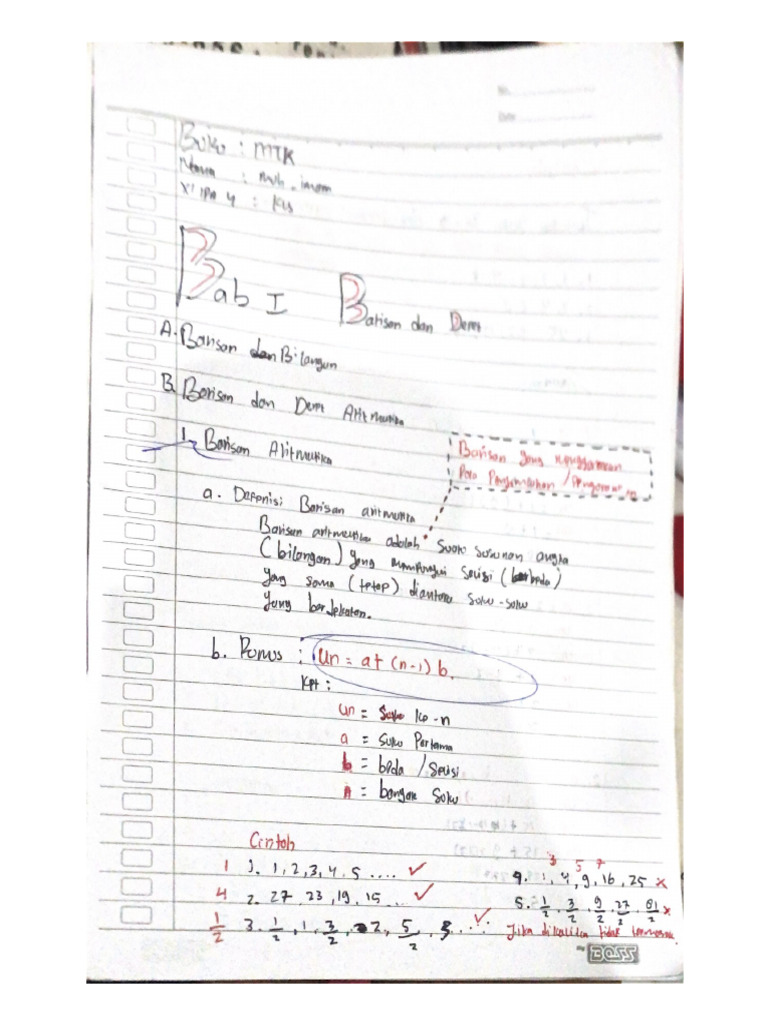 No.
Date
Buku : MTK
Nama : Muh. imam
XI IPA 4 : Kls
Bab I Barisan dan Deret
A. Barisan dan Bilangan
B. Barisan dan Deret Aritmetika
1. Barisan Aritmetika
Barisan yang
Pola Penjumlahan /
a. Defenisi Barisan aritmetika
Barisan aritmetika adalah suatu susunan angka
(bilangan) yang mempunyai selisi (berbeda)
yang sama (tetap) diantara suku-suku
yang berdekatan.
b. Rumus : Un = a + (n-1) b.
Ket :
Un = Suku ke-n
a = suku Pertama
b = beda / Selisi
n = banyak suku
Contoh
3 5 7
1 1. 1, 2, 3, 4, 5 .... ✓
4. 1, 4, 9, 16, 25 ×
4 2. 27, 23, 19, 15 ... ✓
5. 1/2, 3/2, 9/2, 27/2, 81/2 ×
1/2 3. 1/2, 1, 3/2, 2, 5/2, 3 .... ✓
Jika dikalikan tidak termasuk
BOSS